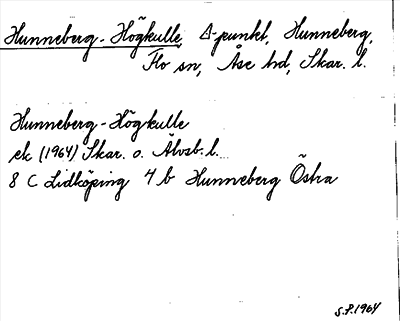 Hunneberg-Högkulle, Δ-punkt, Hunneberg,
Flo sn, Åse hd, Skar. l.
Hunneberg-Högkulle
ek (1964) Skar. o. Älvsb. l.
8 C Lidköping 4 b Hunneberg Östra
S.P. 1964